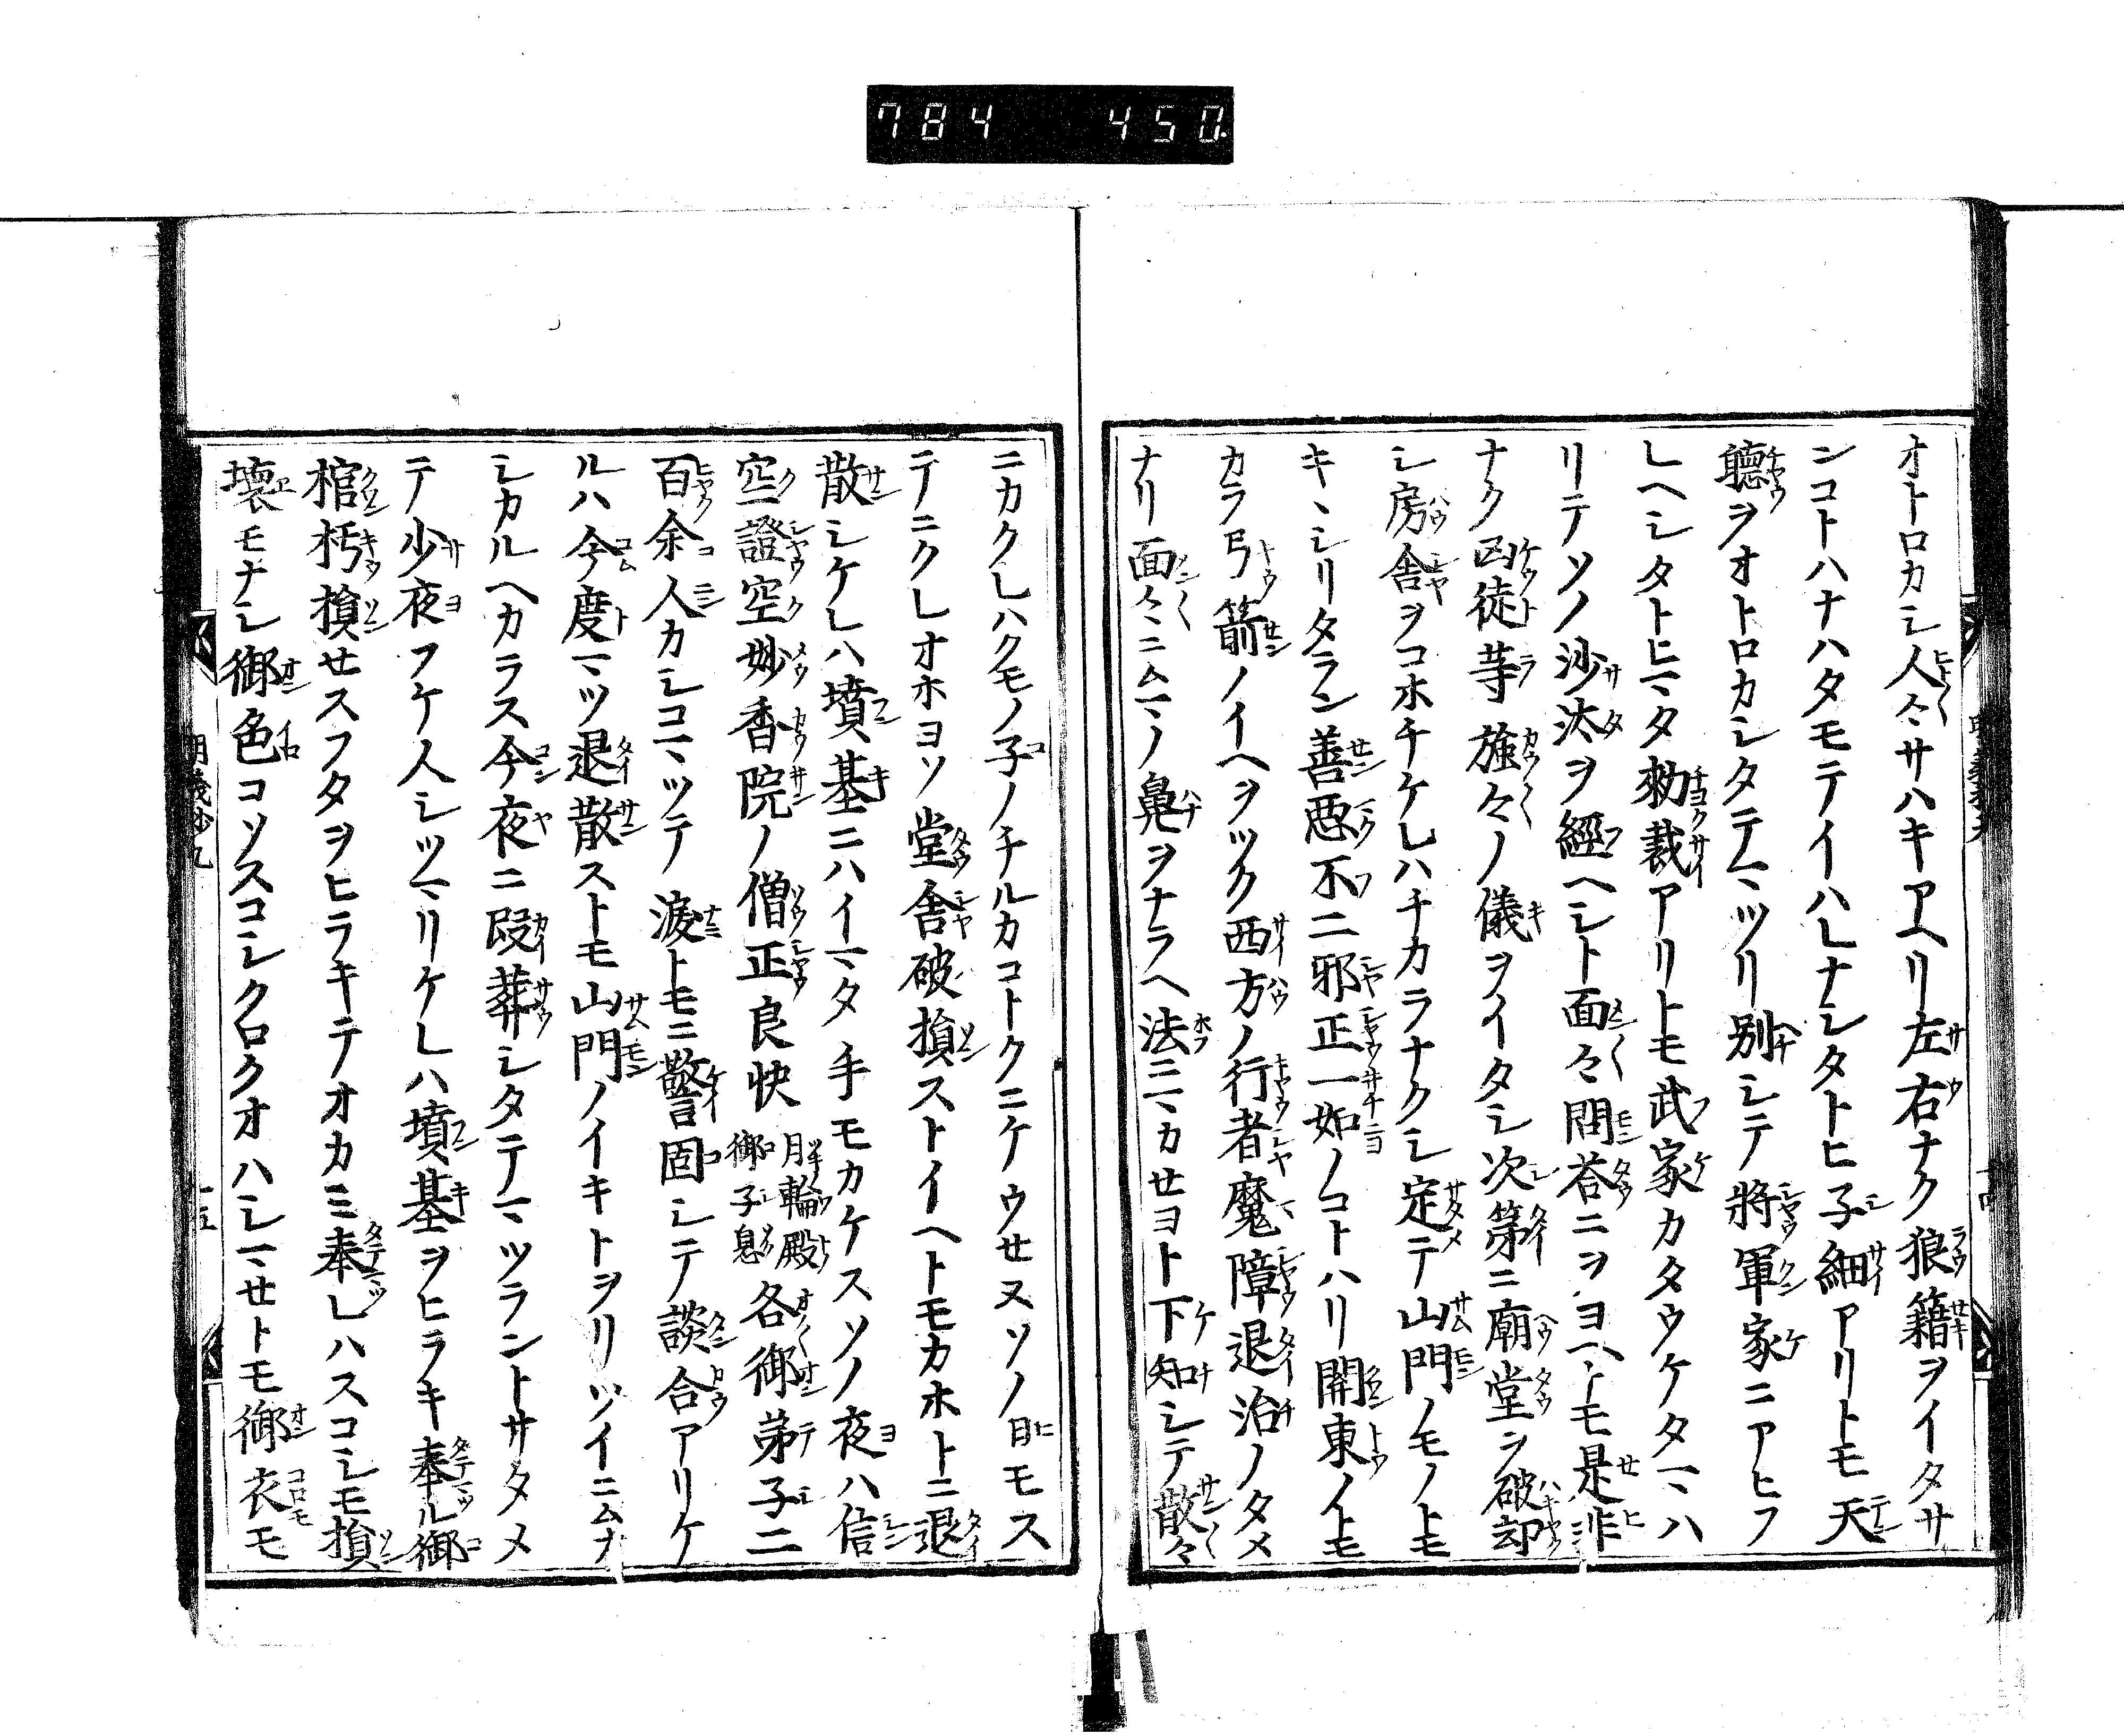 784 450
オトロカシ人々サハキアヘリ左右ナク狼籍ヲイタサ
ンコトハナハタモテイハレナシタトヒ子細アリトモ天
聴ヲオトロカシタテマツリ別シテ將軍家ニアヒフ
レヘシタトヒマタ勅裁アリトモ武家カタウケタマハ
リテソノ沙汰ヲ經ヘシト面々問荅ニヲヨヘトモ是非
ナク凶徒等旌々ノ儀ヲイタシ次第ニ廟堂ヲ破却
シ房舎ヲコホチケレハチカラナクシ定テ山門ノモノトモ
キヽシリタラン善悪不二邪正一如ノコトハリ関東ノイトモ
カラ弓箭ノイヘヲツク西方ノ行者魔障退治ノタメ
ナリ面々ニムマノ鼻ヲナラヘ法ニマカセヨト下知シテ散々
ニカクレハクモノ子ノチルカコトクニケウセヌソノ日モス
テニクレオホヨソ堂舎破損ストイヘトモカホトニ退
散シケレハ墳基ニハイマタ手モカケスソノ夜ハ信
空證空妙香院ノ僧正良快月輪殿御子息各御弟子二
百余人カシコマツテ涙トモニ警固シテ談合アリケ
ルハ今度マツ退散ストモ山門ノイキトヲリツイニムナ
シカルヘカラス今夜ニ改葬シタテマツラントサタメ
テ少夜フケ人シツマリケレハ墳基ヲヒラキ奉ル御
棺朽損セスフタヲヒラキテオカミ奉レハスコシモ損
壊モナシ御色コソスコシクロクオハシマセトモ御衣モ